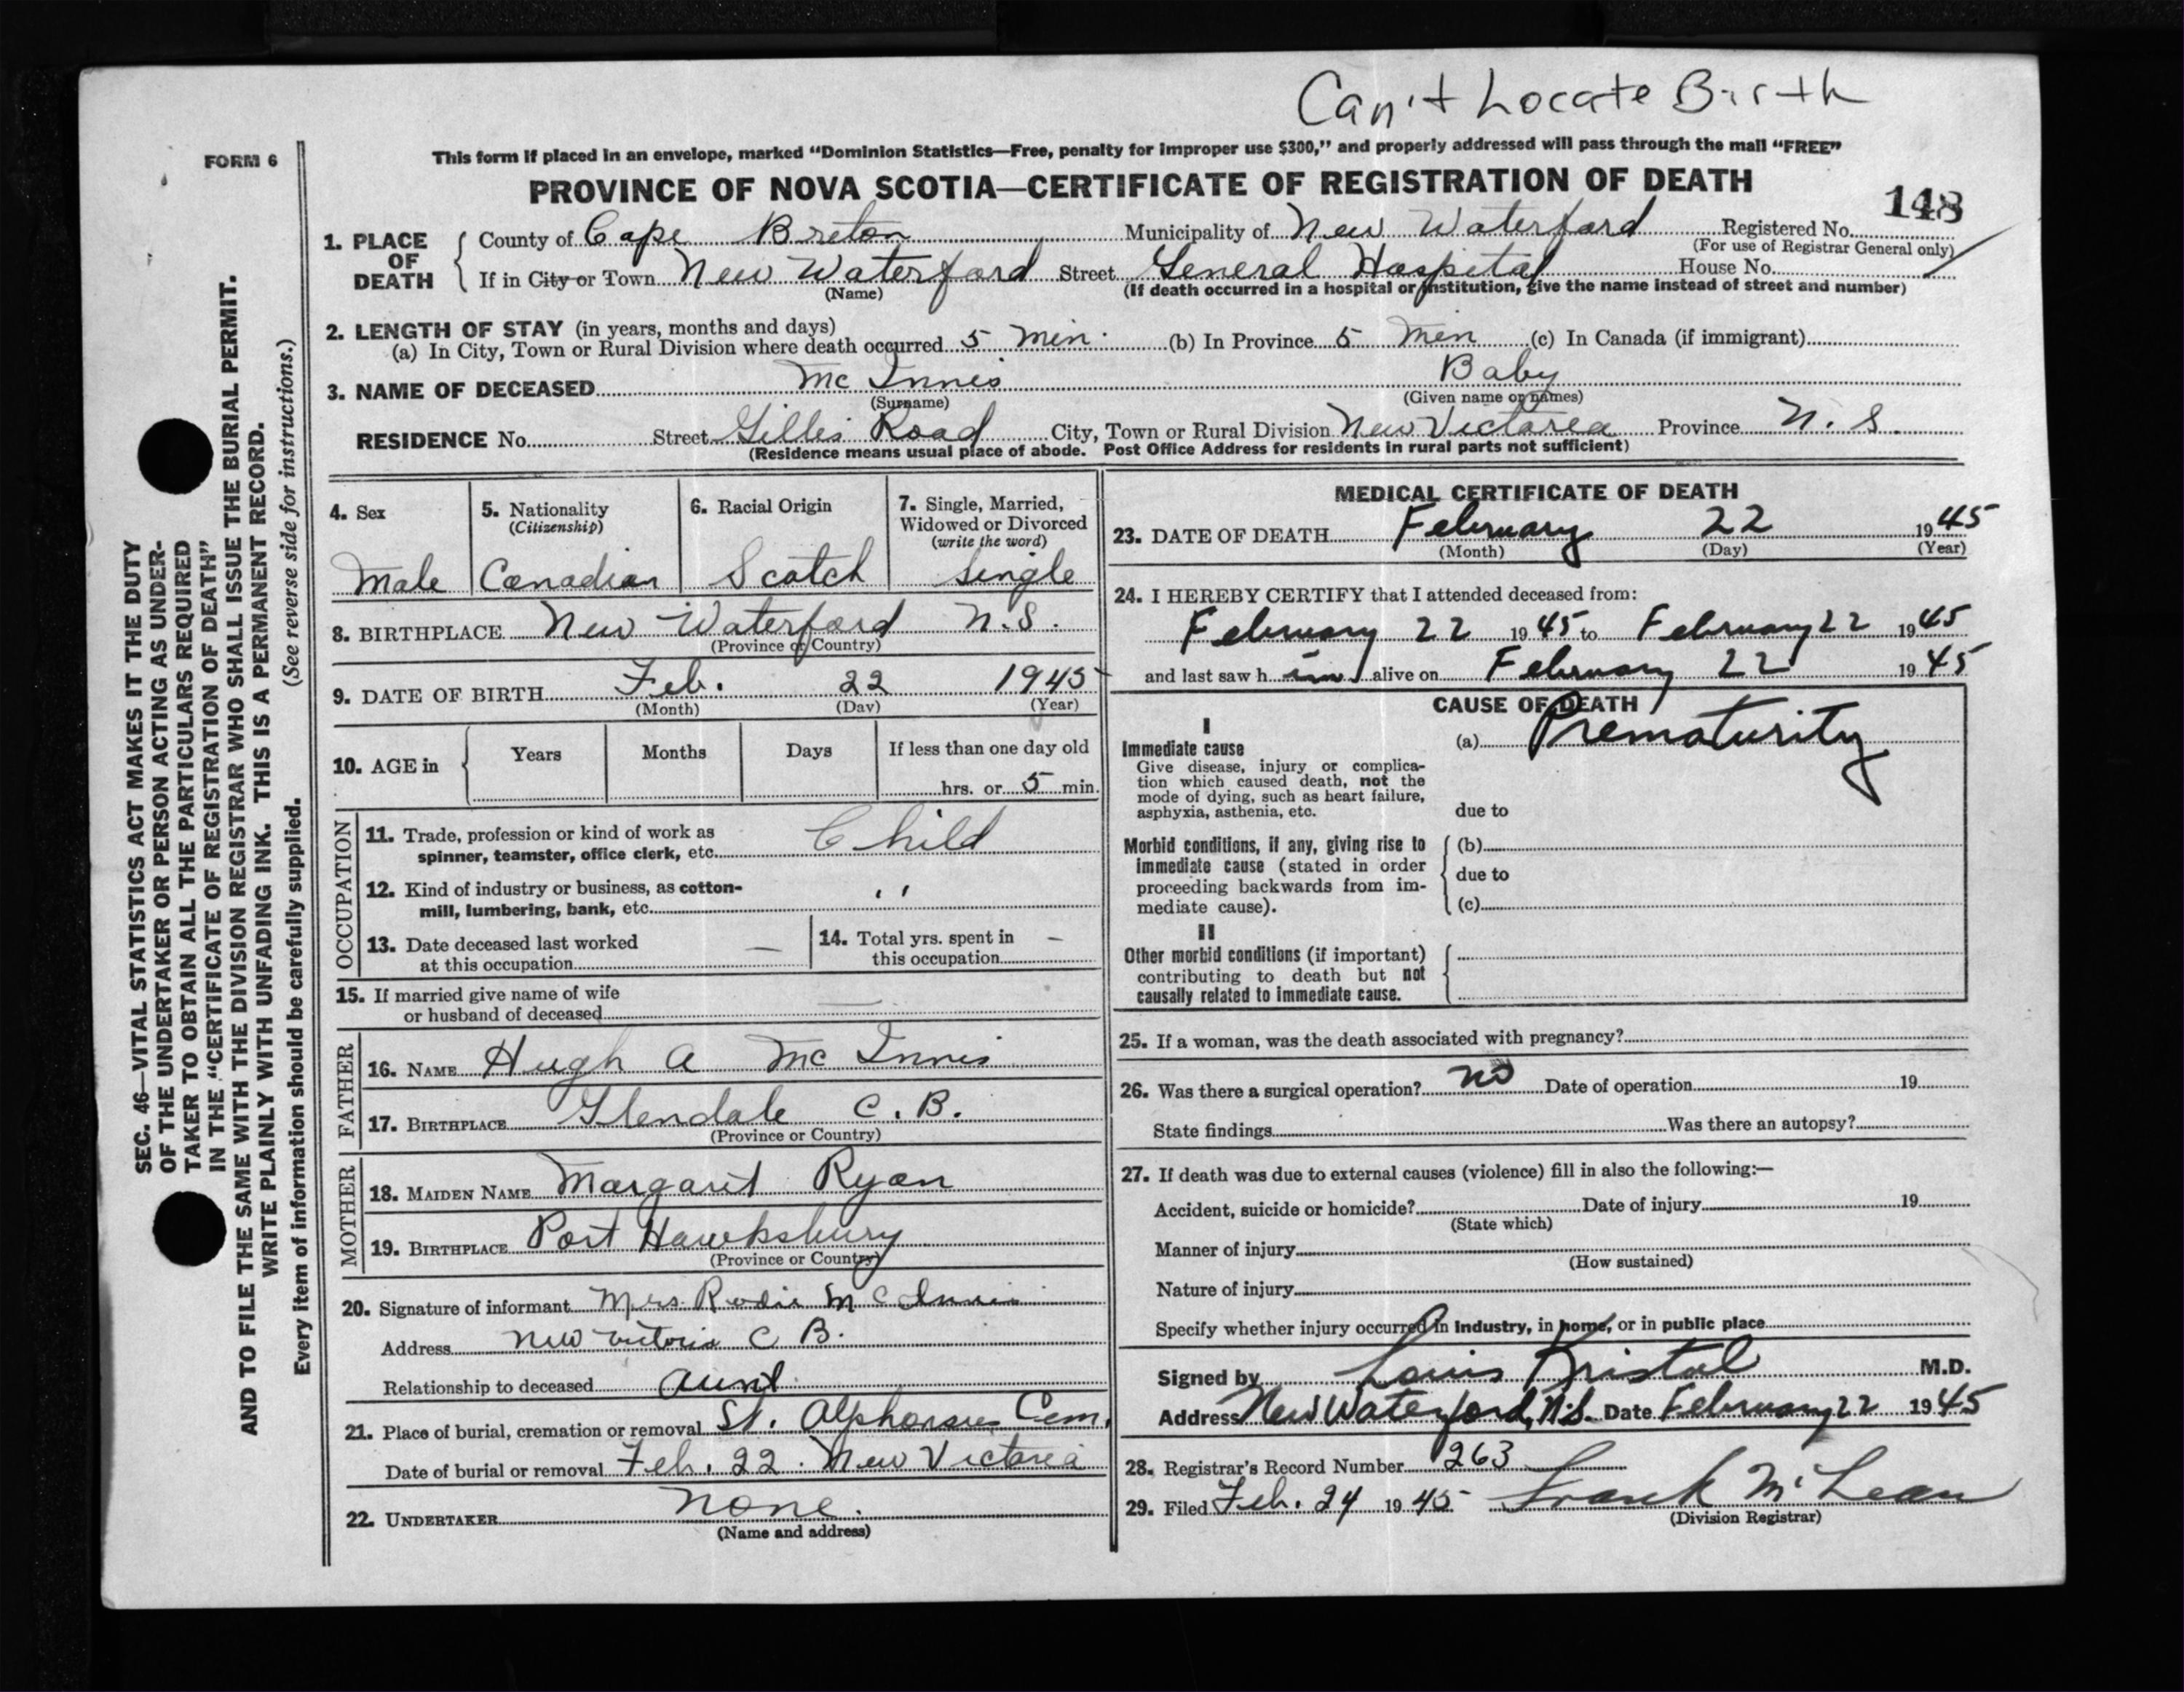 Can't Locate Birth
FORM 6
This form if placed in an envelope, marked "Dominion Statistics—Free, penalty for improper use $300," and properly addressed will pass through the mail "FREE"
PROVINCE OF NOVA SCOTIA—CERTIFICATE OF REGISTRATION OF DEATH
148
1. PLACE OF DEATH
County of Cape Breton Municipality of New Waterford Registered No.
(For use of Registrar General only)
If in City or Town New Waterford Street General Hospital House No.
(Name) (If death occurred in a hospital or institution, give the name instead of street and number)
2. LENGTH OF STAY (in years, months and days)
(a) In City, Town or Rural Division where death occurred 5 min. (b) In Province 5 min (c) In Canada (if immigrant)
3. NAME OF DECEASED Mc Innes Baby
(Surname) (Given name or names)
RESIDENCE No. Street Gillis Road City, Town or Rural Division New Victoria Province N. S.
(Residence means usual place of abode. Post Office Address for residents in rural parts not sufficient)
4. Sex
Male
5. Nationality
(Citizenship)
Canadian
6. Racial Origin
Scotch
7. Single, Married,
Widowed or Divorced
(write the word)
Single
8. BIRTHPLACE New Waterford N.S.
(Province or Country)
9. DATE OF BIRTH Feb. 22 1945
(Month) (Day) (Year)
10. AGE in
Years Months Days If less than one day old
hrs. or 5 min.
OCCUPATION
11. Trade, profession or kind of work as
spinner, teamster, office clerk, etc. Child
12. Kind of industry or business, as cotton-
mill, lumbering, bank, etc. ' '
13. Date deceased last worked
at this occupation —
14. Total yrs. spent in
this occupation —
15. If married give name of wife
or husband of deceased —
FATHER
16. NAME Hugh A Mc Innis
17. BIRTHPLACE Glendale C. B.
(Province or Country)
MOTHER
18. MAIDEN NAME Margaret Ryan
19. BIRTHPLACE Port Hawksbury
(Province or Country)
20. Signature of informant Mrs. Rodie McInnis
Address New Victoria C B.
Relationship to deceased aunt
21. Place of burial, cremation or removal St. Alphonsus Cem.
Date of burial or removal Feb. 22. New Victoria
22. UNDERTAKER none.
(Name and address)
MEDICAL CERTIFICATE OF DEATH
23. DATE OF DEATH February 22 1945
(Month) (Day) (Year)
24. I HEREBY CERTIFY that I attended deceased from:
February 22 1945 to February 22 1945
and last saw h im alive on February 22 1945
CAUSE OF DEATH
I
Immediate cause
Give disease, injury or complica-
tion which caused death, not the
mode of dying, such as heart failure,
asphyxia, asthenia, etc.
(a) Prematurity
due to
Morbid conditions, if any, giving rise to
immediate cause (stated in order
proceeding backwards from im-
mediate cause).
(b)
due to
(c)
II
Other morbid conditions (if important)
contributing to death but not
causally related to immediate cause.
25. If a woman, was the death associated with pregnancy?
26. Was there a surgical operation? no Date of operation 19
State findings Was there an autopsy?
27. If death was due to external causes (violence) fill in also the following:—
Accident, suicide or homicide? Date of injury 19
(State which)
Manner of injury
(How sustained)
Nature of injury
Specify whether injury occurred in industry, in home, or in public place
Signed by Louis Kristal M.D.
Address New Waterford, N.S. Date February 22 1945
28. Registrar's Record Number 263
29. Filed Feb. 24 1945 Frank McLean
(Division Registrar)
SEC. 46—VITAL STATISTICS ACT MAKES IT THE DUTY
OF THE UNDERTAKER OR PERSON ACTING AS UNDER-
TAKER TO OBTAIN ALL THE PARTICULARS REQUIRED
IN THE "CERTIFICATE OF REGISTRATION OF DEATH"
AND TO FILE THE SAME WITH THE DIVISION REGISTRAR WHO SHALL ISSUE THE BURIAL PERMIT.
WRITE PLAINLY WITH UNFADING INK. THIS IS A PERMANENT RECORD.
Every item of information should be carefully supplied. (See reverse side for instructions.)